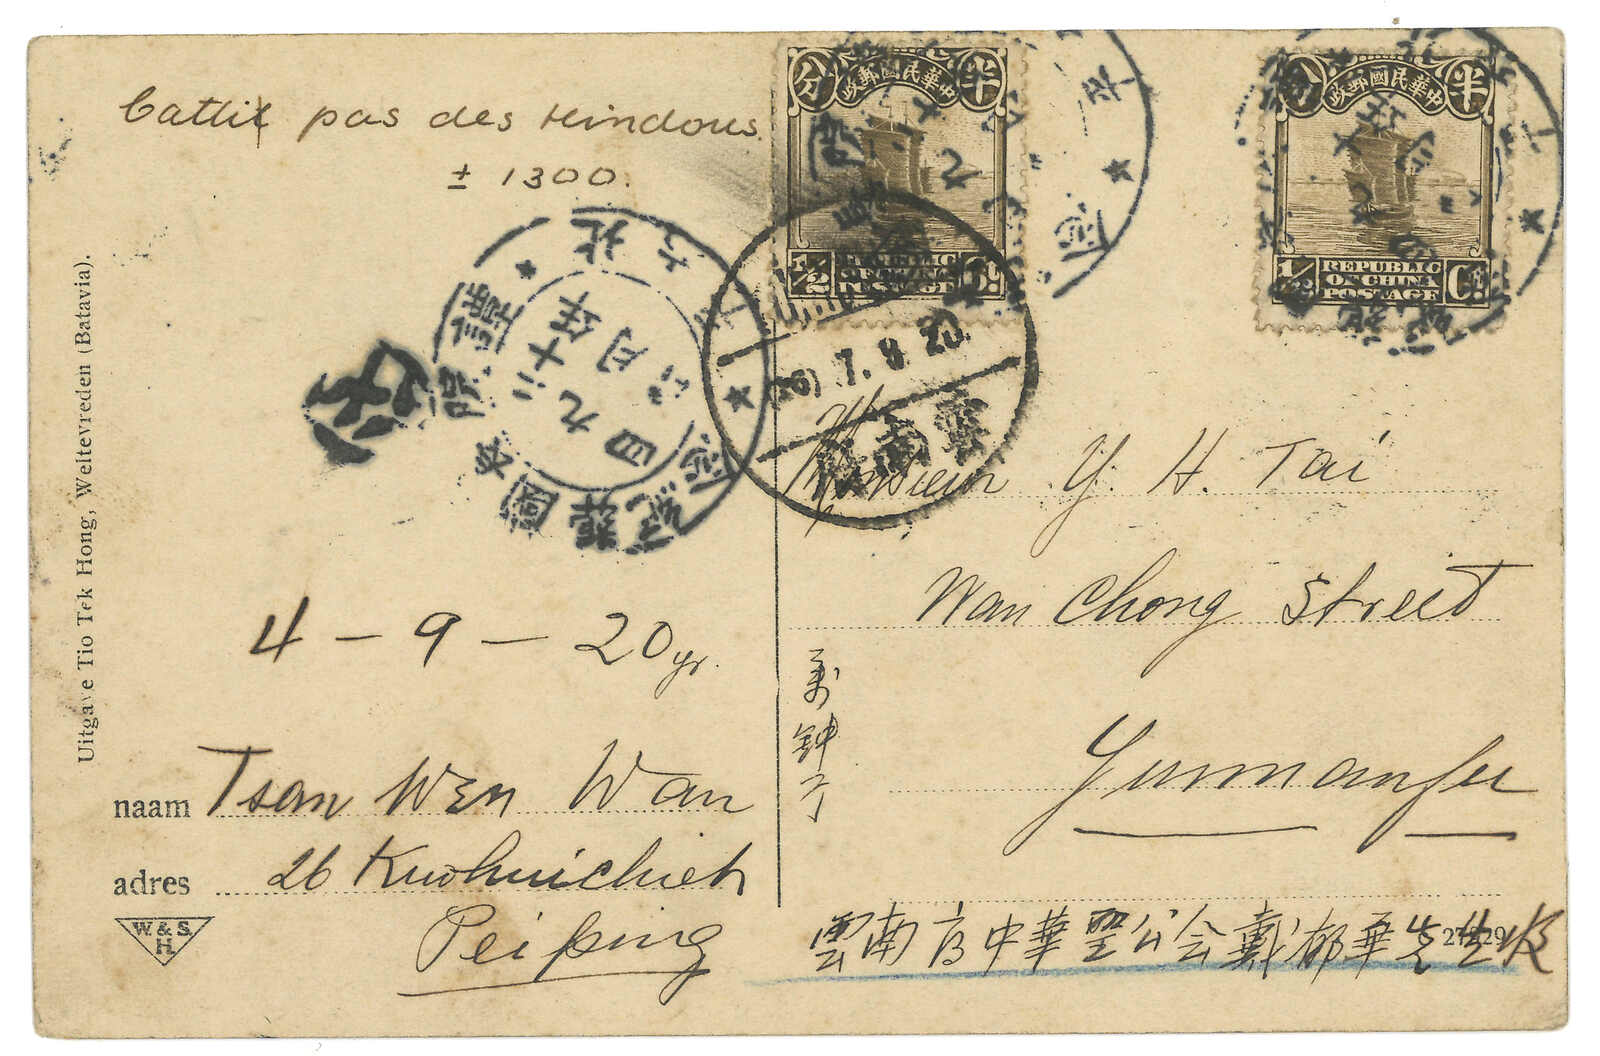 pas des Hindous
± 1300.
分 中華民國郵政 半
1/2 REPUBLIC OF CHINA POSTAGE
分 中華民國郵政 半
1/2 REPUBLIC OF CHINA POSTAGE
7. 9 20
雲南
北
四 九 二十
月 年
Monsieur Y. H. Tai
Wan Chong Street
Yunnanfu
4 - 9 - 20 yr.
naam Tsan Wen Wan
adres 26 Kuohuichieh
Peiping
W. & S.
H.
雲南府中華聖公会戴郁華先生收
Uitgave Tio Tek Hong, Weltevreden (Batavia).